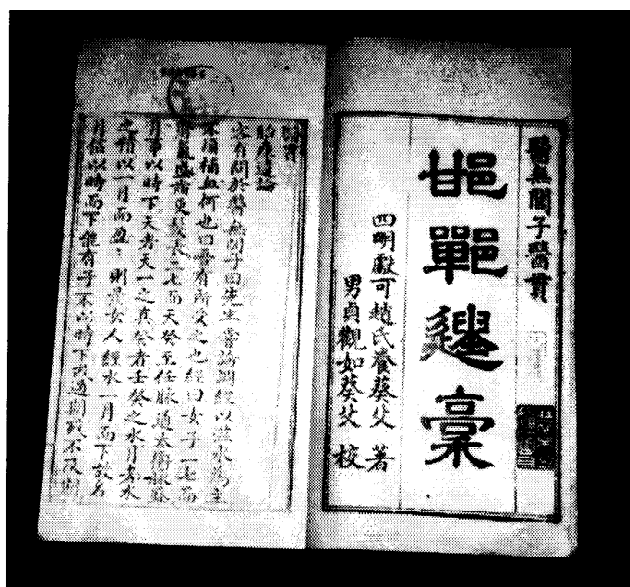 醫無閭子醫貫
邯鄲遺稾
四明獻可趙氏養葵父 著
男貞觀如葵父 校
醫貫
胎產遺論
客有問於醫無閭子曰先生嘗論調經以滋水為主
不須補血何也曰嘗有所受之也經曰女子一七而
腎氣盛齒更髮長二七而天癸至任脉通太衝脉盛
月事以時下天者天一之真癸者壬癸之水月者水
之精以一月而盈〻則昃女人經水一月而下故名
月信以時而下能有子不以時下或過期或不及期